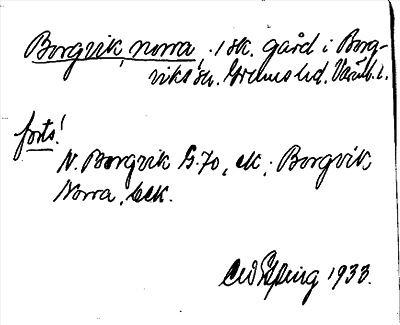 Borgvik, norra, 1 sk. gård i Borg-
viks sn. Grums hd. Värml. l.
forts!
N. Borgvik G. 70, ek.; Borgvik
Norra, bek.
1933.